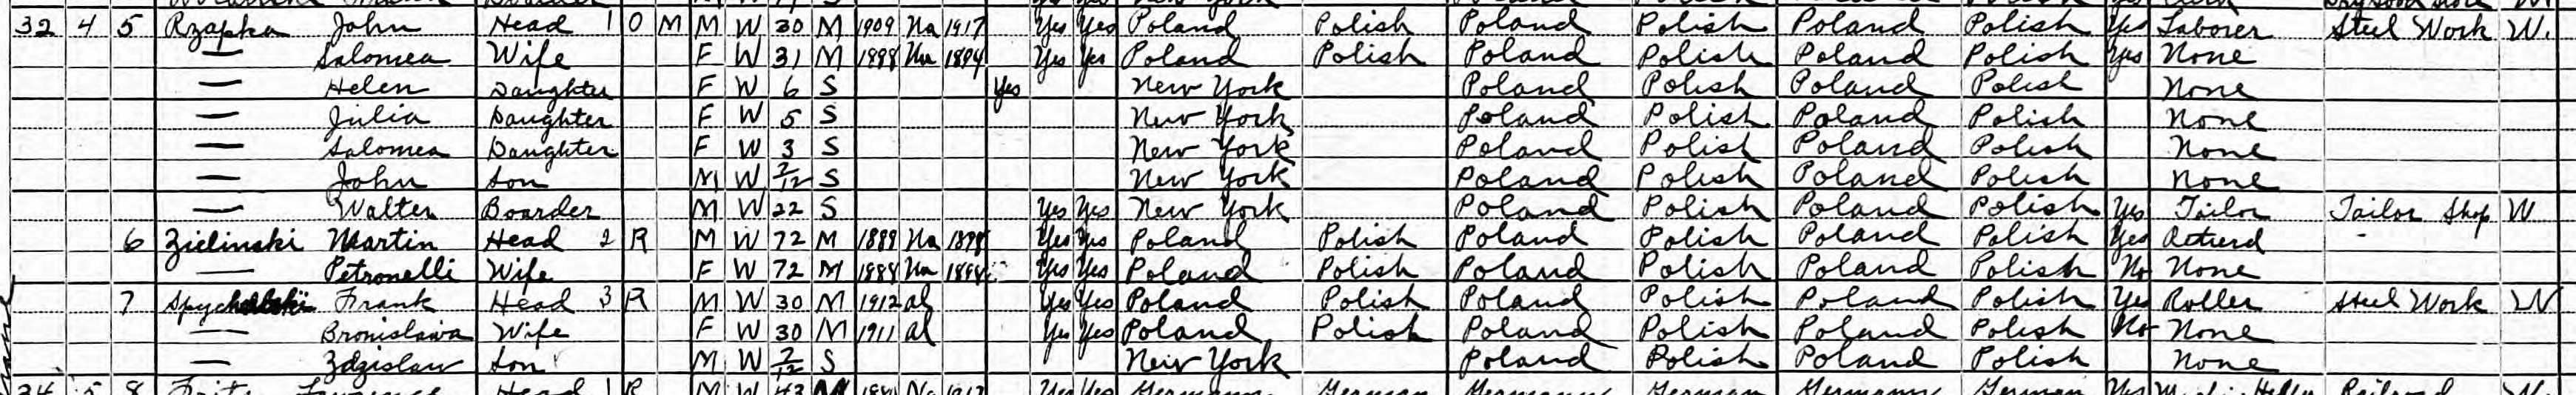 New York
32 4 5 Rzapka John Head 1 O M M W 30 M 1909 Na 1917 Yes Yes Poland Polish Poland Polish Poland Polish Yes Laborer Steel Work W.
— Salomea Wife F W 31 M 1888 Na 1894 Yes Yes Poland Polish Poland Polish Poland Polish Yes None
— Helen Daughter F W 6 S Yes New York Poland Polish Poland Polish None
— Julia Daughter F W 5 S New York Poland Polish Poland Polish None
— Salomea Daughter F W 3 S New York Poland Polish Poland Polish None
— John Son M W /12 S New York Poland Polish Poland Polish None
— Walter Boarder M W 22 S Yes Yes New York Poland Polish Poland Polish Yes Tailor Tailor Shop W
6 Zielinski Martin Head 2 R M W 72 M 1889 Na Yes Yes Poland Polish Poland Polish Poland Polish Yes Retierd
— Petronelli Wife F W 72 M 1888 Na Yes Yes Poland Polish Poland Polish Poland Polish No None
7 Frank Head 3 R M W 30 M 1912 al Yes Yes Poland Polish Poland Polish Poland Polish Yes Roller Steel Work W
— Bronislawa Wife F W 30 M 1911 al Yes Yes Poland Polish Poland Polish Poland Polish No None
— Zdzislaw Son M W /12 S New York Poland Polish Poland Polish None
34 5 8 Head 1 R M W 43 M Na Yes Yes Germany German Germany German Germany German Yes Railroad W